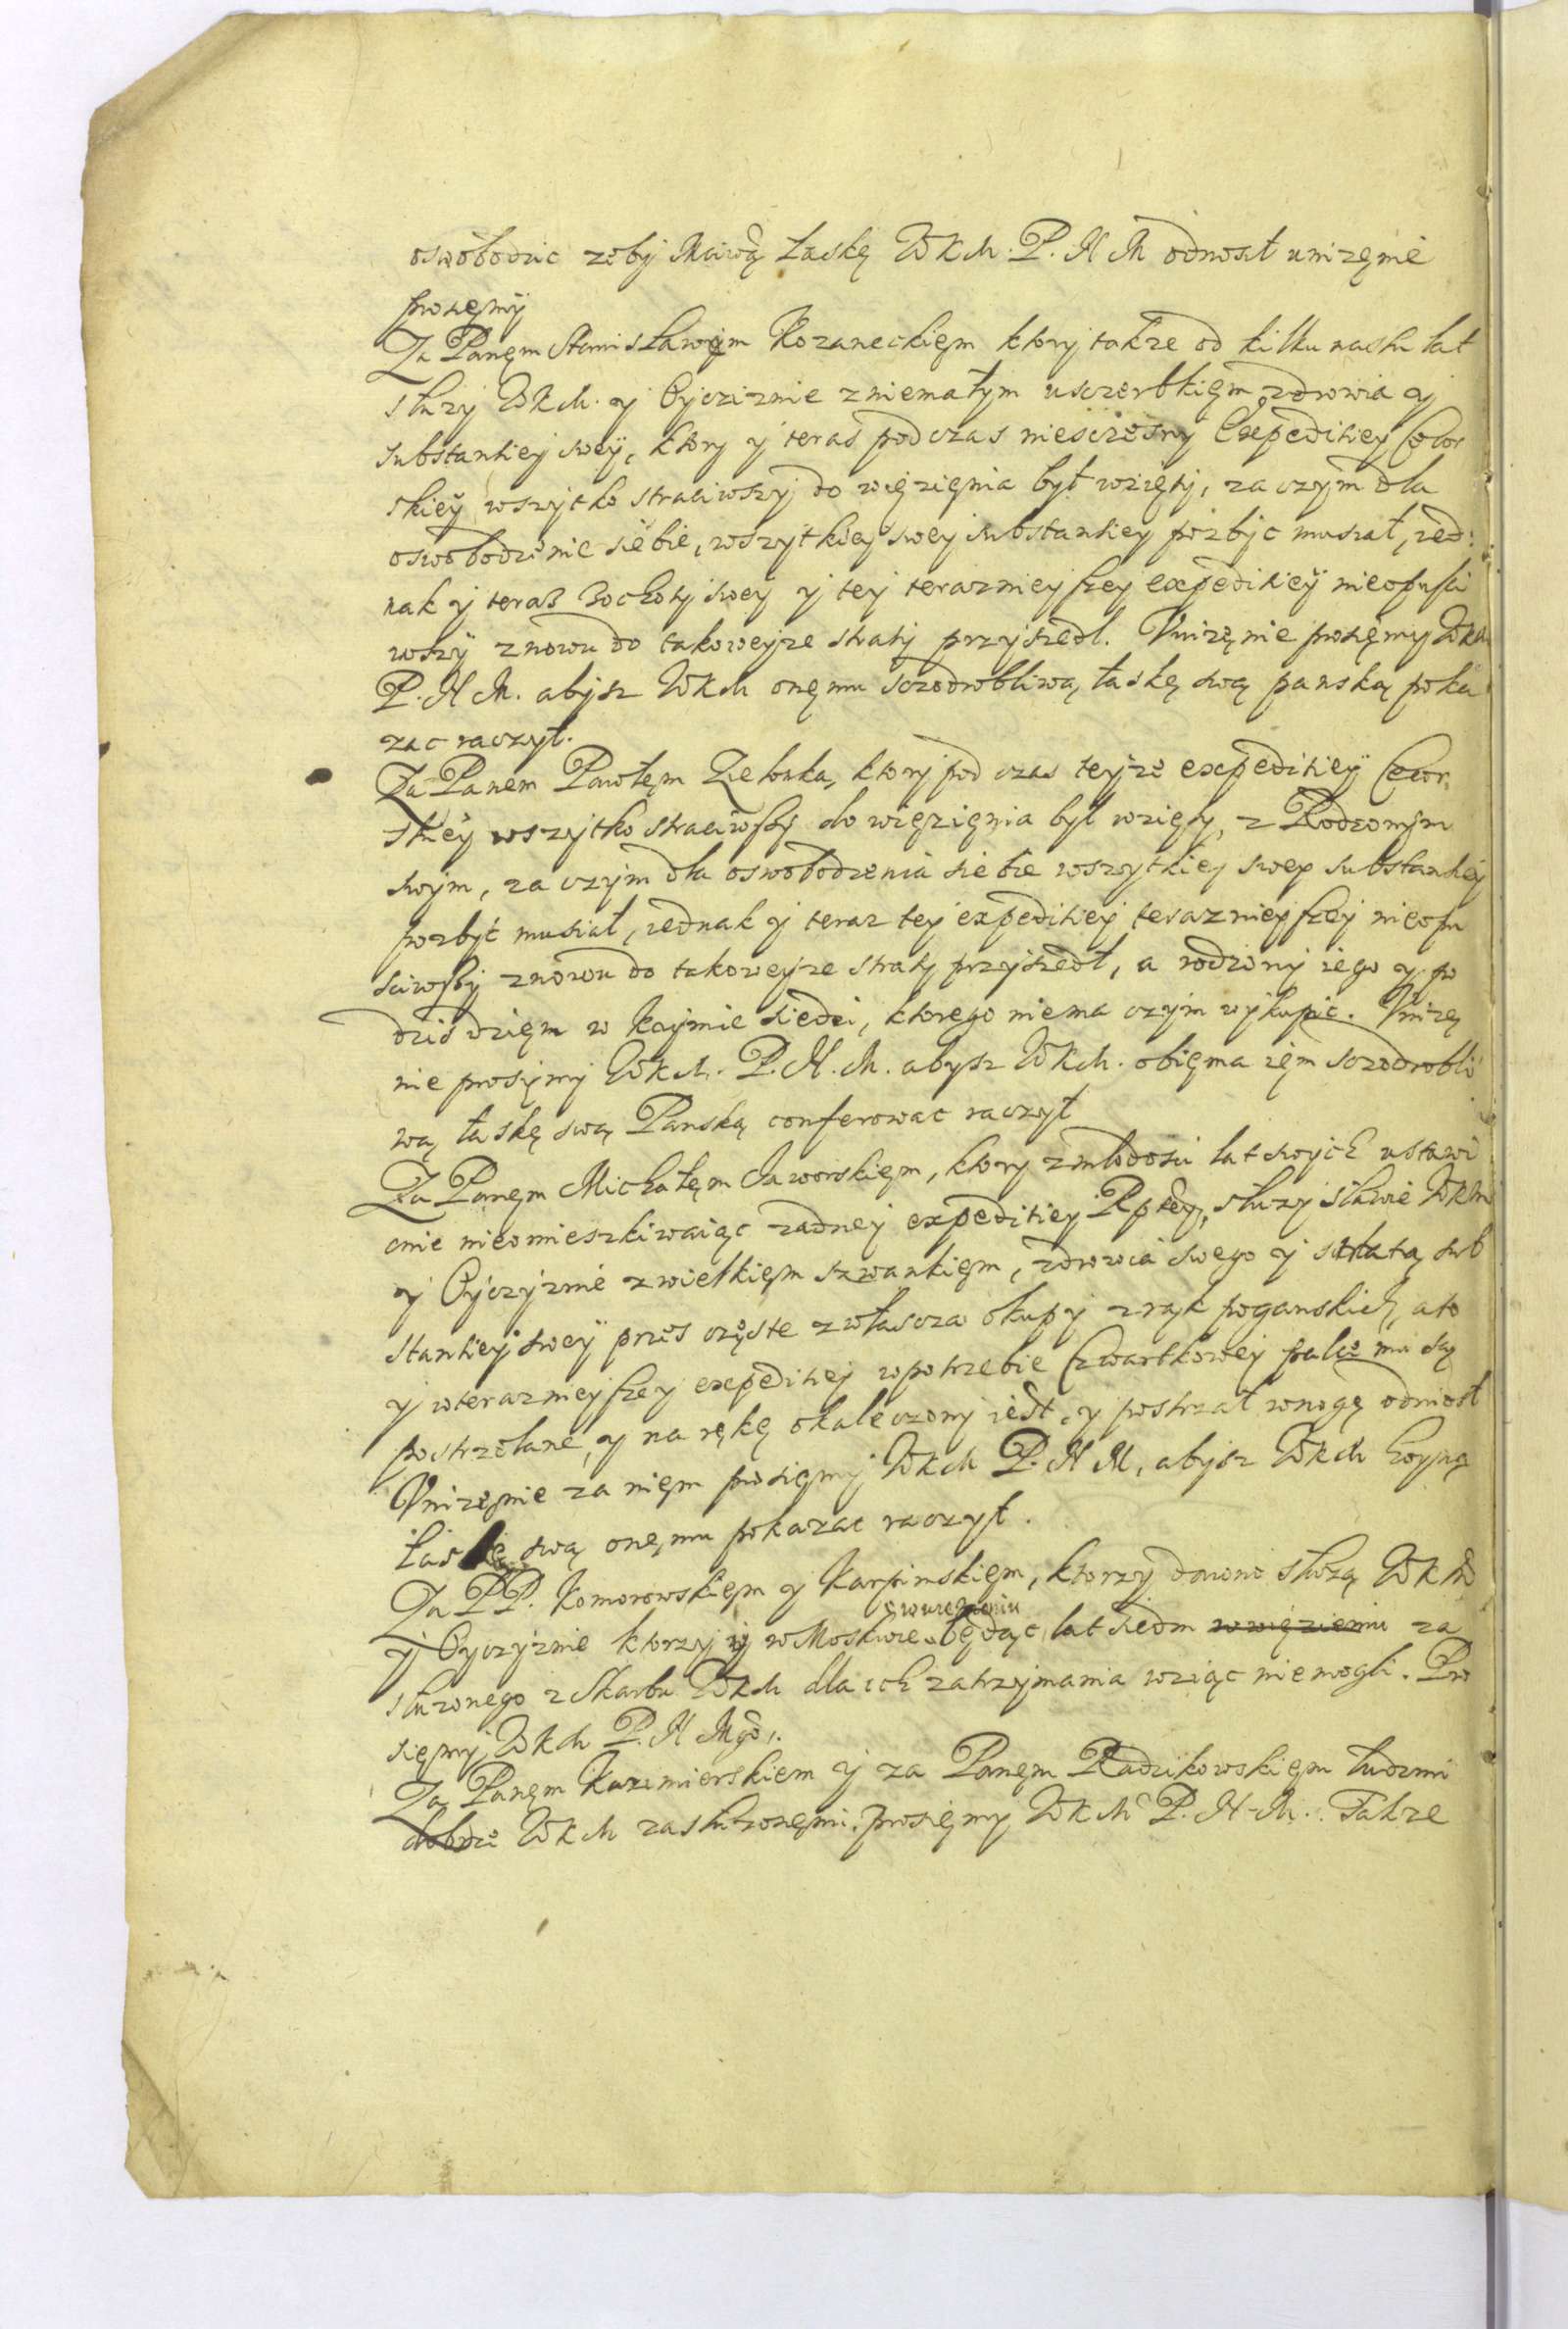 oswobodzic zeby Maiwą Łaskę WKM. P. N M odnosił unizęnie
prosięmÿ
Za Panęm Stanisławęm Kozaneckięm ktory takze od kilkunastu lat
słuzy WKM. y Oyczizmie zniemałym usczerbkięm zdrowia y
substantiey sweÿ, ktory y teras podczas niesczęsny Expeditiey Cecor
skieÿ wszytko straciwszy do więzięnia był wzięty, zaczym dla
oswobodzenie siebie, wszytkiey swey substantiey pozbyc musiał, ied:
nak y teras zochoty swey y tey terazniejszey expeditieÿ nieopusci
wszÿ znowu do takowejze straty przyszedł. Vnizęnie prosięmy WKM
P. N M. abysz WKM onęmu sczodrobliwą łaskę swą panską poka
zac raczył.
Za Panem Pawłęm Zielonką, ktory pod czas teyze expeditieÿ Cecor,
skieÿ wszytko straciwszy do więzięnia był wzięty, z Rodzonym
swym, zaczym dla oswobodzenia siebie wszytkiey swey substantiey
pozbyć musiał, iednak y teraz tey expeditiey terazniejszey nieopu
sciwszy znowu do takowejze straty przyszedł, a rodzony iego y po
dzis dzięn w Krymie siedzi, ktorego niema czym wykupic. Vnizę
nie prosięmy WKM. P. N. M. abysz WKM. obięma ięm sczodrobli
wą łaskę swą Panską conferowac raczył
Za Panęm Michałęm Jaworskięm, ktory zmłodosci lat swych ustawi
cnie nieomieszkiwaiąc zadney expeditiey Rptey, słuzy sławie WKM
y Oyczyzmie zwielkięm szwankięm, zdrowia swego y stratą sub
stantiey sweÿ przes częste zwłascza okupy zrąk poganskich, a to
y wterazniejszey expeditiey wpotrzebie Czwartkowey palce mu są
postrzelane, y na rękę okaleczony iest, y postrzał wnogę odniosł
Vnizęnie za nięm prosięmy WKM P. N M, abysz WKM hoyną
Łaskę swą onęmu pokazac raczył.
Za PP. Komorowskięm y Karpinskięm, ktorzy dawno słuzą WKM
y Oyczyzmie ktorzy y w Moskwie w więzieniu będąc lat siedm w więzieniu za
słuzonego z Skarbu WKM dla ich zatrzymania wziąc niemogli. Pro
sięmy WKM P. N Mgo.
Za Panęm Kazimierskiem y za Panęm Radzikowskięm ludzmi
dobrze WKM zasłuzonęmi, prosięmy WKM P. N. M. Takze